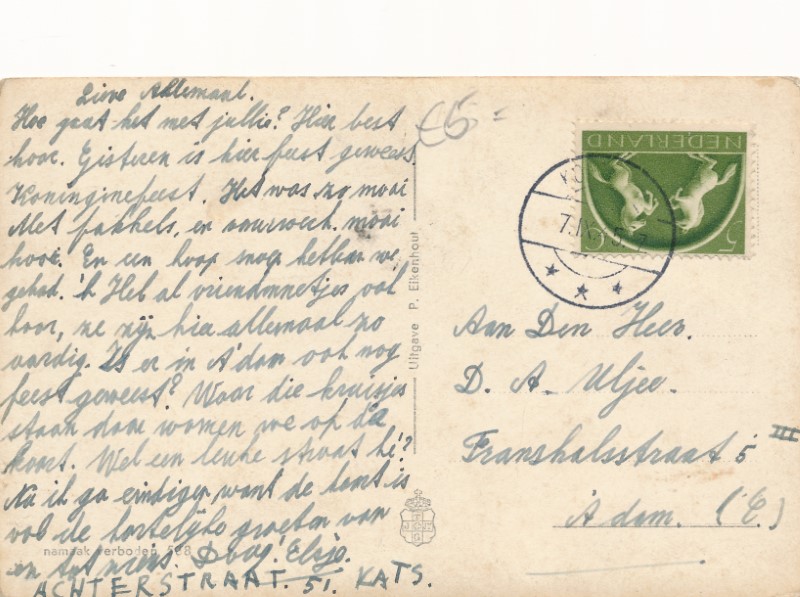 Lieve Allemaal.
Hoe gaat het met jullie? Hier best
hoor. Gisteren is hier feest geweest
Koninginefeest. Het was zo mooi
Met fakkels, en vuurwerk. mooi
hoor. En een hoop snoep hebben we
gehad. 'k Heb al vriendinnetjes ook
hoor, ze zijn hier allemaal zo
aardig. Is er in A'dam ook nog
feest geweest? Waar die kruisjes
staan daar wonen we op de
kaart. Wel een leuke straat hè?
Nu ik ga eindigen want de kaart is
vol de hartelijke groeten van
en tot ziens. Daag! Elsje.
ACHTERSTRAAT. 51. KATS.
namaak verboden
Uitgave P. Eikenhout
£5=
NEDERLAND
5 C
Aan Den Heer.
D. A. Uljee.
Franshalsstraat 5 III
A'dam. (C)